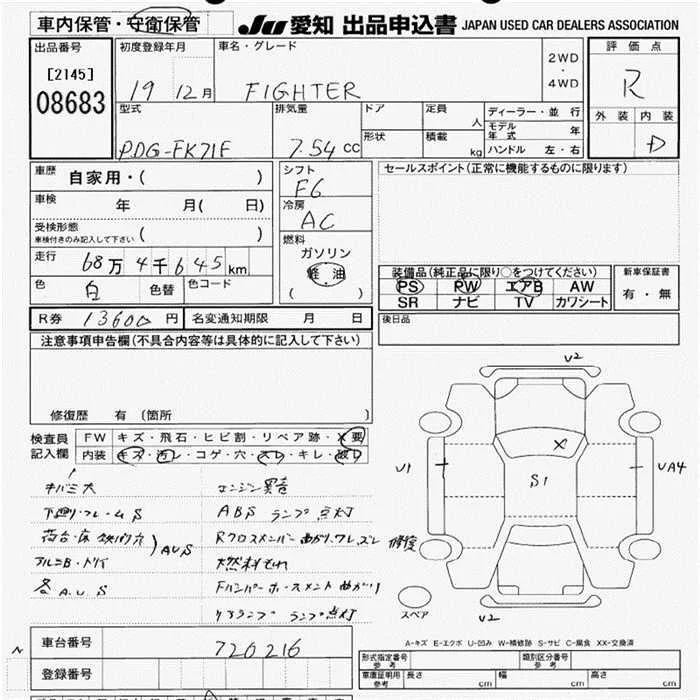 車内保管・守衛保管 JU 愛知 出品申込書 JAPAN USED CAR DEALERS ASSOCIATION
出品番号 初度登録年月 車名・グレード 2WD・4WD 評価点
[2145]
08683
19 12月 FIGHTER R
型式 排気量 ドア 定員 人 ディーラー・並行 外装 内装
形状 積載 kg モデル年式 年
PDG-FK71F 7.54 cc ハンドル 左・右 D
車歴 自家用・( ) シフト F6 セールスポイント(正常に機能するものに限ります)
車検 年 月( 日) 冷房 AC
受検形態 車検付きのみ記入して下さい ( ) 燃料
走行 68万4千645km ガソリン 軽油 ( )
装備品(純正品に限り○をつけてください) 新車保証書
色 白 色替 色コード PS PW エアB AW 有・無
SR ナビ TV カワシート
R券 13600円 名変通知期限 月 日 後日品
注意事項申告欄(不具合内容等は具体的に記入して下さい)
修復歴 有 (箇所 )
検査員記入欄 FW キズ・飛石・ヒビ割・リペア跡・X要
内装 キズ・汚レ・コゲ・穴・スレ・キレ・破レ
キバミ大 エンジン異音
下廻り・フレームS ABSランプ点灯
荷台・床 AUS Rクロスメンバー曲がり、ワレ、ズレ 修復
アルミB・ドリイ 燃料もれ
各A.U.S Fバンパーホースメント曲がり
ランプ点灯
U2
U1 S1 X UA4
スペア U2
A-キズ E-エクボ U-凹み W-補修跡 S-サビ C-腐食 XX-交換済
車台番号 720216
登録番号
形式指定番号 参考 類別区分番号 参考
車庫証明用 参考 長さ cm 幅 cm 高さ cm